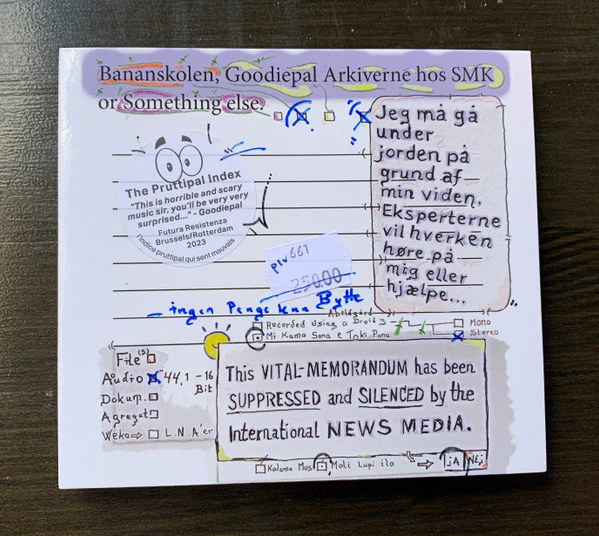 Bananskolen, Goodiepal Arkiverne hos SMK
or Something else.
The Pruttipal Index
"This is horrible and scary
music sir, you'll be very very
surprised..." - Goodiepal
Futura Resistenza
Brussels/Rotterdam
2023
l'indice pruttipal qui sent mauvais
Jeg må gå
under
jorden på
grund af
min viden.
Eksperterne
vil hverken
høre på
mig eller
hjælpe...
plv661
250.00
- ingen Penge kun Bytte
Recorded Using a Droid 3
Mi Kama Sona e Toki Pona
Mono
Stereo
File(s)
Audio 44,1 - 16
Bit
Dokum.
Agregat
Weka⇨ L.N.A'er
This VITAL-MEMORANDUM has been
SUPPRESSED and SILENCED by the
International NEWS MEDIA.
Kalama Mus
Moli Lupi ilo
⇨ jA NEj